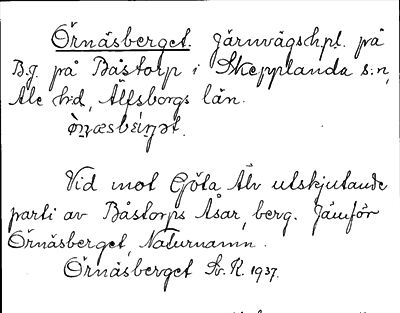 Örnäsberget. Järnvägshpl. på
B.J. på Båstorp i Skepplanda s:n,
Ale hd, Älfsborgs län.
Vid mot Göta Älv utskjutande
parti av Båstorps Åsar, berg. Jämför
Örnäsberget, Naturnamn.
Örnäsberget Sv. K. 1937.